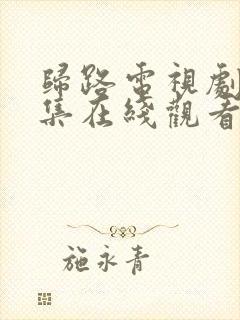 歸路電視劇
集在綫觀看
施永青